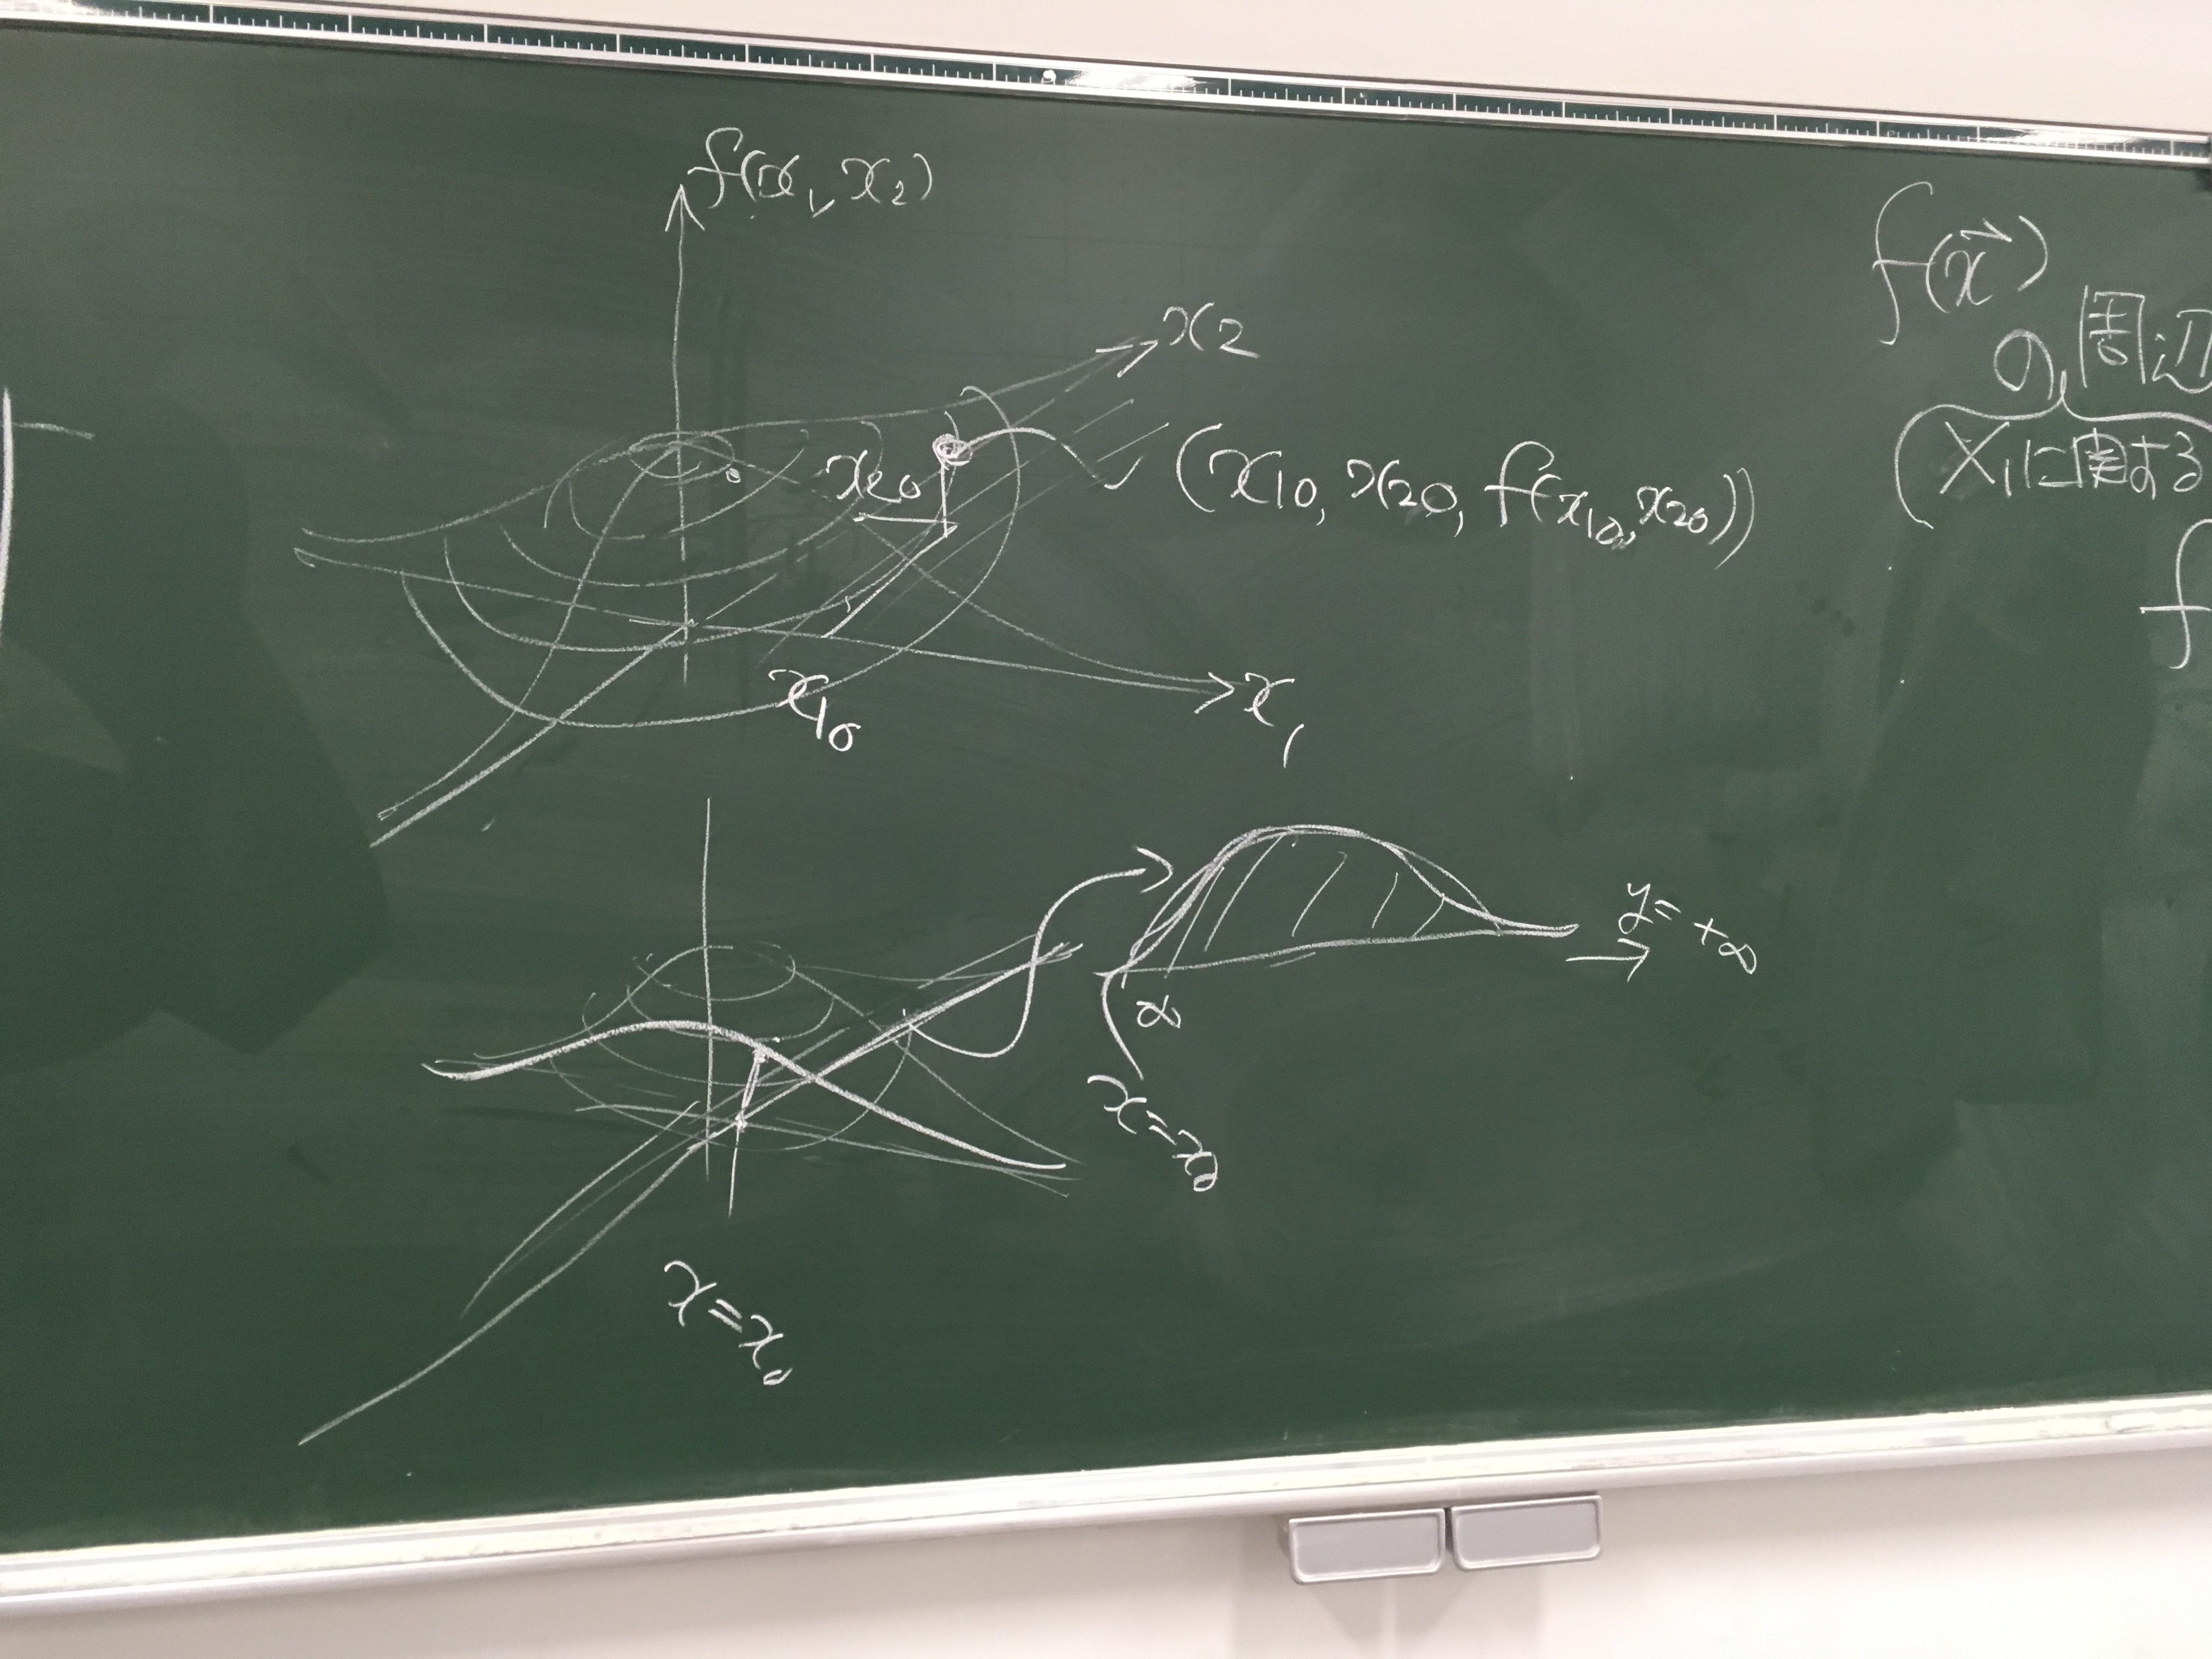 f(x₁, x₂)
x₂
x₂₀
(x₁₀, x₂₀, f(x₁₀, x₂₀))
x₁₀
x₁
y=+∞
∞
x=x₀
x=x₀
f(x⃗)
の周辺
(X₁に関する
f